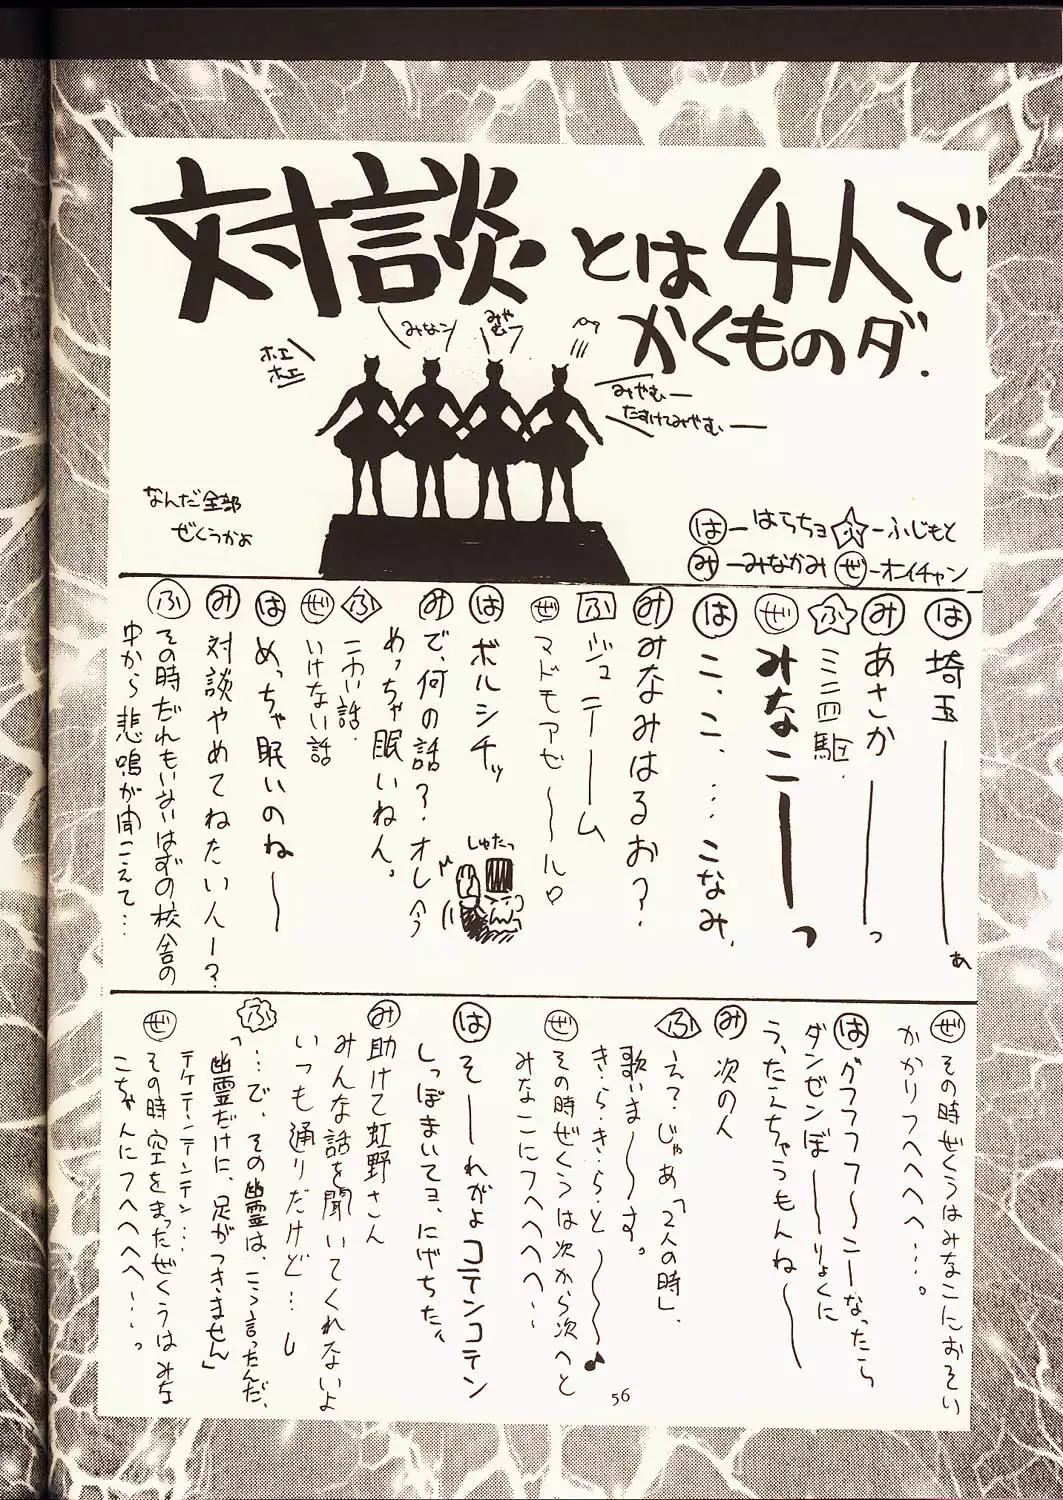 対談とは4人で
かくものダ.
ホエ
ホエ
みなこ
みや
むー
みやむー
たすけてみやむー
なんだ全部
ぜくうかよ
は―はらちョ ふ―ふじもと
み―みなかみ ぜ―オイチャン
は 埼玉――ぁ
み あさか――っ
ふ ミニ四駆.
ぜ みなこーーっ
は こ、こ、…こなみ、
み みなみはるお?
ふ ジュニーーム
ぜ マドモアゼ〜ル♡
は ボルシチッ
しゅたっ
み で、何の話? オレ今
めっちゃ眠いねん。
ふ こわい話.
ぜ いけない話
は めっちゃ眠いのね――〜
み 対談やめてねたい人ー?
ふ その時だれもいないはずの校舎の
中から悲鳴が聞こえて…
ぜ その時ぜくうはみなこにおそい
かかりフヘヘヘヘ……。
は グフフフフ〜こーなったら
ダンゼンぼ――〜りょくに
う、たえちゃうもんね〜
み 次の人
ふ えっ?じゃあ「2人の時」
歌いま〜〜す。
き、ら、き、ら、と〜〜♪
ぜ その時ぜくうは次から次へと
みなこにフヘヘヘヘヘ…
は そ――れがよコテンコテン
しっぽまいてヨ、にげちた〃
み 助けて虹野さん
みんな話を聞いてくれないよ
いつも通りだけど…し
ふ 「…で、その幽霊は、こう言ったんだ、
幽霊だけに、足がつきません」
テケテンテンテンテン…
ぜ その時空をまったぜくうはみな
こちゃんにフヘヘヘヘ……っ
56